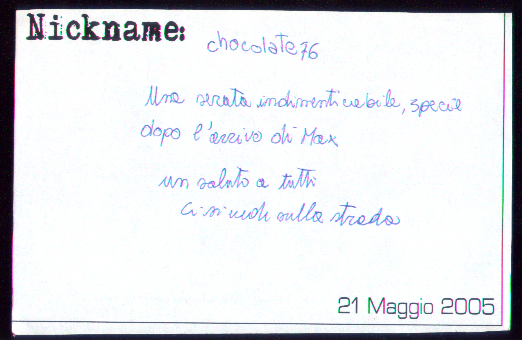 Nickname: chocolate76
Una serata indimenticabile, specie
dopo l'arrivo di Max
un saluto a tutti
ci si vede sulla strada
21 Maggio 2005